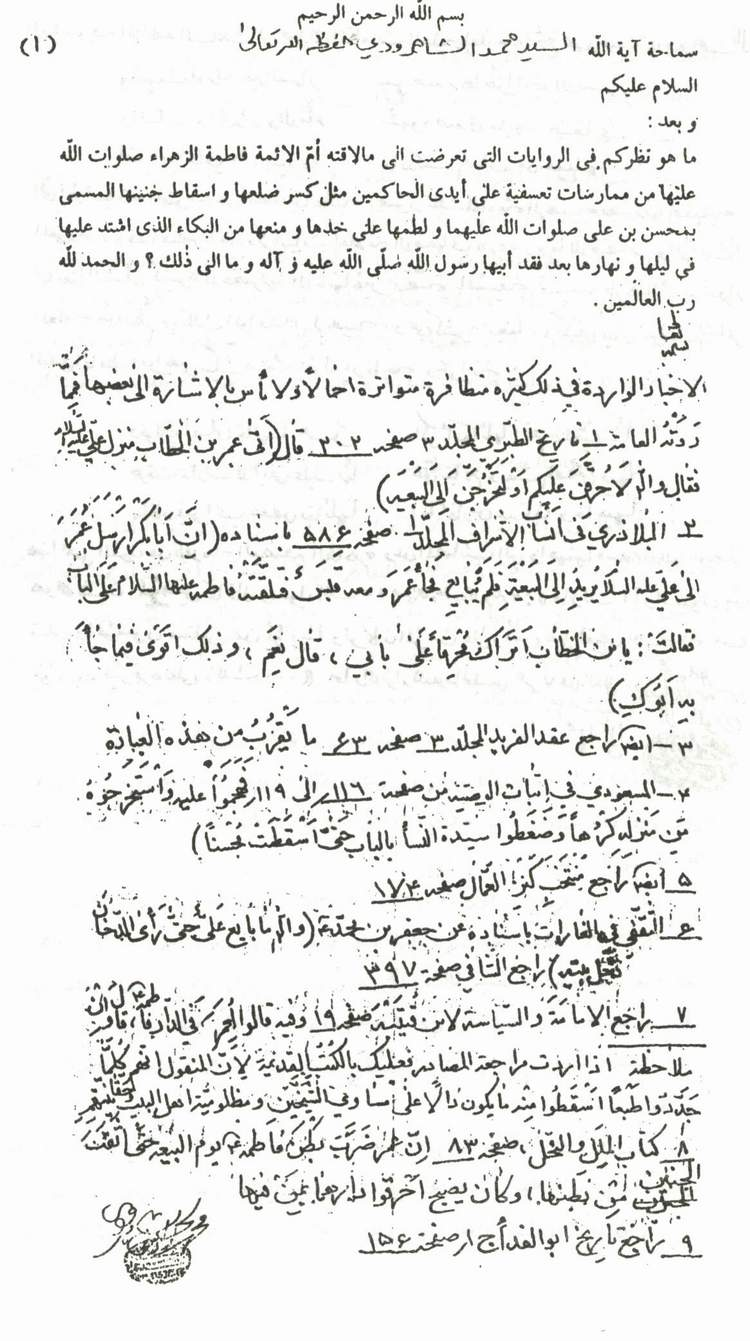 بسم الله الرحمن الرحيم
سماحة آية الله السيد محمد الشاهرودي حفظه الله تعالى (١)
السلام عليكم
و بعد :
ما هو نظركم فى الروايات التى تعرضت الى مالاقته أمّ الائمة فاطمة الزهراء صلوات الله
عليها من ممارسات تعسفية على أيدى الحاكمين مثل كسر ضلعها و اسقاط جنينها المسمى
بمحسن بن على صلوات الله عليهما و لطمها على خدها و منعها من البكاء الذى اشتد عليها
في ليلها و نهارها بعد فقد أبيها رسول الله صلّى الله عليه و آله و ما الى ذلك ؟ و الحمد لله
رب العالمين .
الاخبار الواردة في ذلك كثيرة متظافرة متواترة اجمالاً ولا بأس بالاشارة الى بعضها فممّا
روته العامة ١ـ تاريخ الطبري المجلد ٣ صفحه ٢٠٢ قال (أتى عمر بن الخطاب منزل علي عليه السلام
فقال والله لاحرقن عليكم أو لتخرجن الى البيعة)
٢ـ البلاذري في أنساب الاشراف المجلد ١ صفحه ٥٨٦ باسناده (انّ أبابكر ارسل عُمَرَ
الى علي عليه السلام يريد الى البيعة فلم يبايع فجاء عمر و معه قبس فلقته فاطمة عليها السلام على الباب
فقالت : يا بن الخطاب أتراك محرقاً على بابي ، قال نعم ، وذلك اقوى فيما جاء
به أبوكِ)
٣ـ ايضاً راجع عقد الفريد المجلد ٣ صفحه ٦٣ ما يقرب من هذه العبارة
٤ـ المسعودي في إثبات الوصية من صفحة ١١٦ إلى ١١٩ (فهجموا عليه واستخرجوه
من منزله كرهاً وضغطوا سيدة النساء بالباب حتى أسقطت محسناً)
٥ـ ايضاً راجع منتخب كنز العمال صفحه ١٧٤
٦ـ الثقفي في الغارات باسناده عن جعفر بن محمد (والله ما بايع علي حتى رأى الدخان
دخل بيته) راجع الشافي صفحه ٣٩٧
٧ـ راجع الامامة والسياسة لابن قتيبة صفحه ١٩ وفيه قالوا لعمر في الدار فاطمة قال وإن
ملاحظة اذا اردت مراجعة المصادر فعليك بالكتب القديمة لأنّ المنقول انهم كلما
جدّدوا طبعاً اسقطوا منه ما يكون دالاً على مساوي الشيخين و مظلومية اهل البيت
٨ـ كتاب الملل والنحل ، صفحه ٨٣ إنّ عمر ضرب بطن فاطمة يوم البيعة حتى ألقت
الجنين من بطنها ، وكان يصيح احرقوا دارها بمن فيها
٩ـ راجع تاريخ ابو الفداء ج ١ صفحه ١٥٦